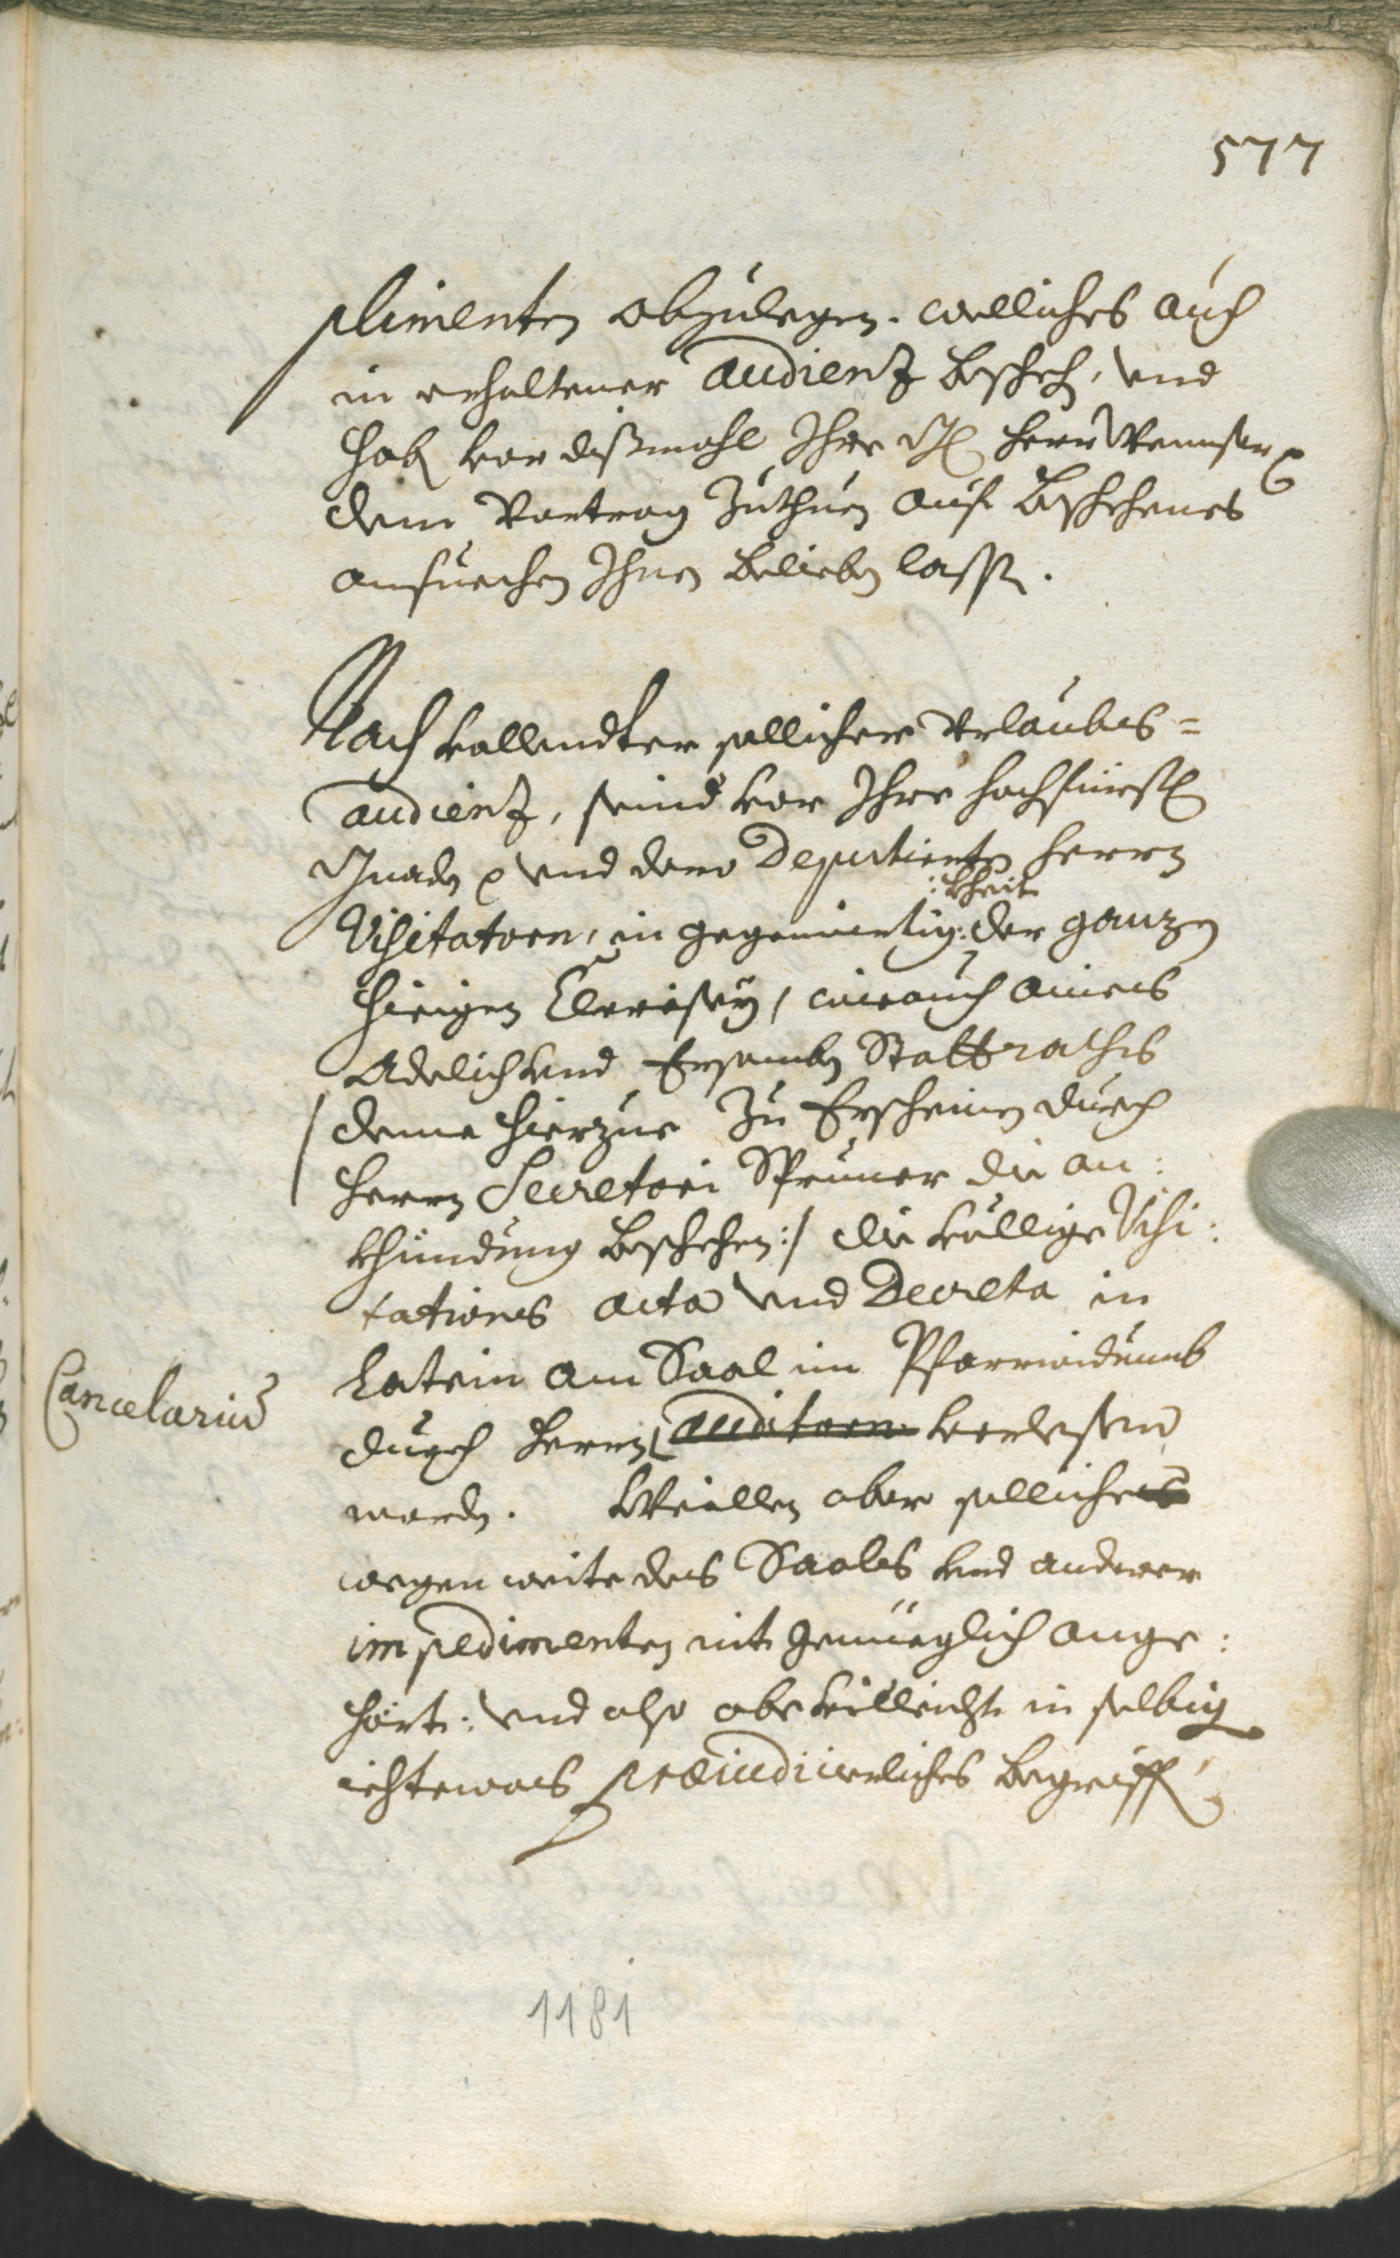 577
plimenten abzulegen. welliches auch
in erhaltener Audienz beschehen, vnd
hab vor dißmahl Ihre
dem Vortrag zuthuen auf beschehenes
ansuechen Ihnen belieben lassen.
Nach vollendter sollicher Vrlaubs=
audienz, seind vor Ihre hochfürstl
Gnaden vnd dero Deputierten herrn
:kheit
Visitatorn, in gegenwertig: der ganzen
hieigen Clerisey, wie auch aines
Adelich vnd Ersamben Stattrathes
/ deme hierzue zu Erscheinen durch
herrn Secretari die an:
khündung beschehen :/ die völlige Visi:
tations acta vnd Decreta in
Latein am Saal im Pfarrwidumb
Cancelarium
durch herrn auditorn verlesen
worden. Weillen aber solliches
wegen weite des Saales vnd anderer
impedimenten nit genüeglich ange:
hört: vnd also ob villeicht in selbig
ichtewas præiudicierliches begriffen
1181